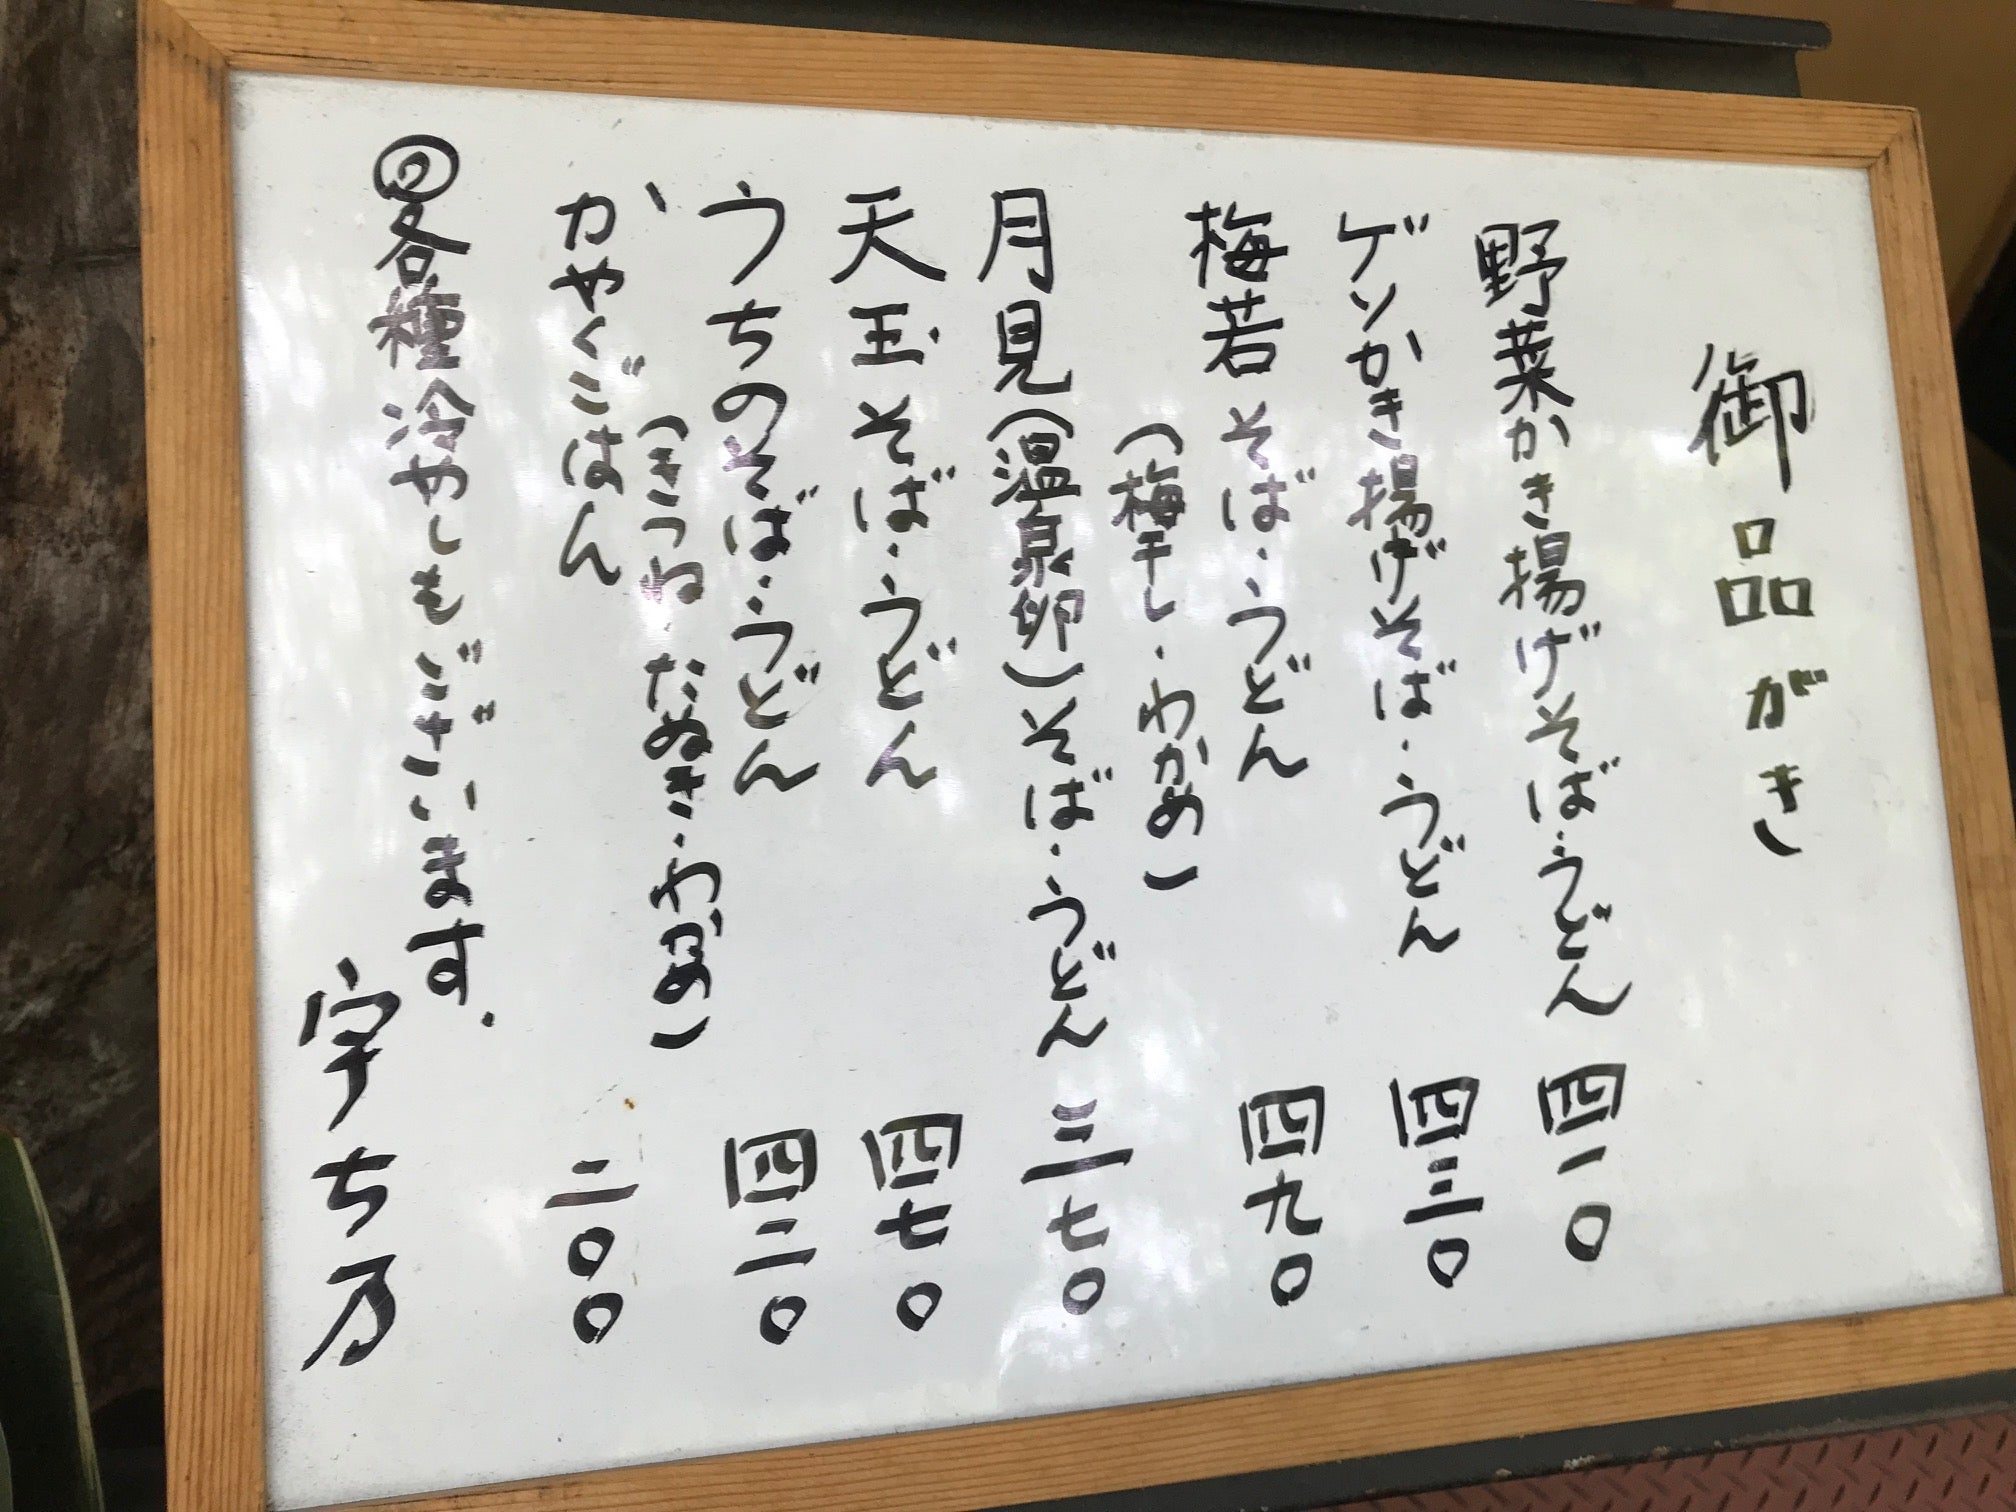 御品がき
野菜かき揚げそば・うどん 四一〇
ゲソかき揚げそば・うどん 四三〇
梅若そば・うどん 四九〇
(梅干し・わかめ)
月見(温泉卵)そば・うどん 三七〇
天玉そば・うどん 四七〇
うちのそば・うどん 四二〇
(きつね たぬき・わかめ)
かやくごはん 二〇〇
◎各種冷やしもございます.
宇ち乃